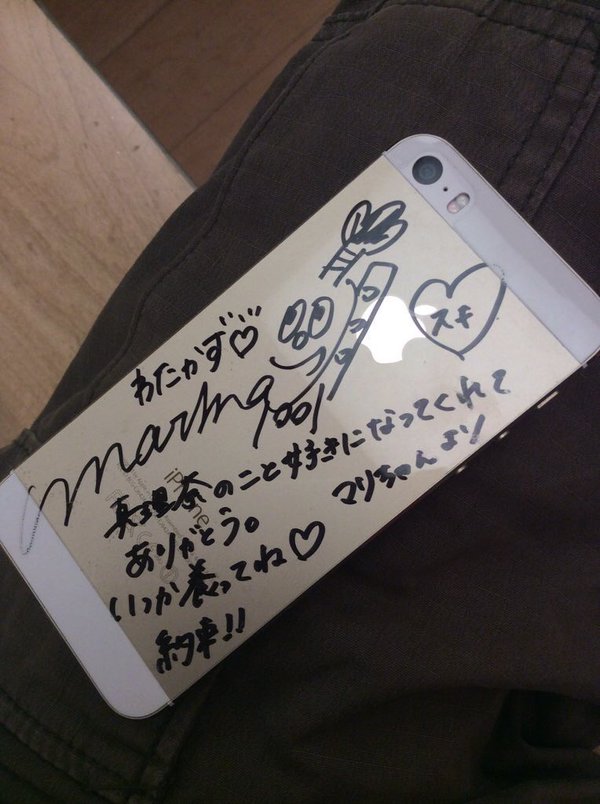 スキ
わたかず♡
marina
真理奈のこと好きになってくれて
ありがとう。
マリちゃんより
いつか養ってね♡
約束!!
iPhone